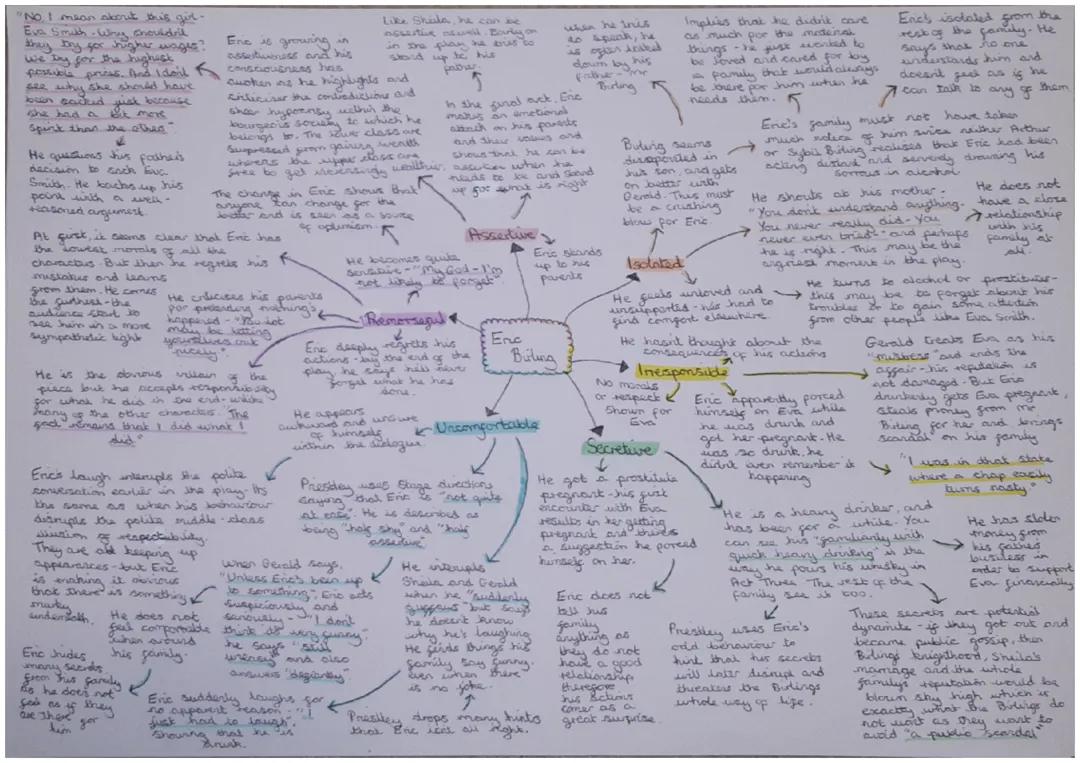 "No, I mean about this girl -
Eva Smith. Why shouldn't
they try for higher wages?
We try for the highest
possible prices. And I don't
see why she should have
been sacked just because
she had a bit more
spirit than the others"
He questions his father's
decision to sack Eva
Smith. He backs up his
point with a well-
reasoned argument.
Eric is growing in
assertiveness and his
consciousness has
awoken as he highlights and
criticises the contradictions and
sheer hypocrisy within the
bourgeois society to which he
belongs to. The lower class are
suppressed from gaining wealth
whereas the upper class are
free to get increasingly wealthier.
The change in Eric shows that
anyone can change for the
better and is seen as a source
of optimism.
Like Sheila, he can be
assertive as well. Early on
in the play he tries to
stand up to his
father.
In the final act, Eric
makes an emotional
attack on his parents
and their values and
shows that he can be
assertive when he
needs to be and stand
up for what is right
Assertive
Eric stands
up to his
parents
when he tries
to speak, he
is often
down by his
father - Mr
Birling
Implies that he didn't care
as much for the material
things - he just wanted to
be loved and cared for by
a family that would always
be there for him when he
needs them.
Eric's isolated from the
rest of the family. He
says that no one
understands him and
doesn't feel as if he
can talk to any of them
Birling seems
dissapointed in
his son, and gets
on better with
Gerald. This must
be a crushing
blow for Eric.
Eric's family must not have taken
much notice of him since neither Arthur
or Sybil Birling realised that Eric had been
acting distant and severely drowning his
sorrows in alcohol.
He shouts at his mother -
"You don't understand anything.
You never really did. You
never even tried" and perhaps
he is right. This may be the
angriest moment in the play.
He does not
have a close
relationship
with his
family at
all.
Isolated
He feels unloved and
unsupported - his had to
find comfort elsewhere.
He turns to alcohol or prostitutes -
this may be to forget about his
troubles or to gain some attention
from other people like Eva Smith.
At first, it seems clear that Eric has
the lowest morals of all the
characters. But then he regrets his
mistakes and learns
from them. He comes
the furthest - the
audience start to
see him in a more
sympathetic light
He becomes quite
sensitive - "My God - I'm
not likely to forget"
He criticises his parents
for pretending nothing's
happened - "You lot
may be letting
yourselves out
nicely"
Remorseful
Eric deeply regrets his
actions - by the end of the
play, he says he'll never
forget what he has
done.
He is the obvious villain of the
piece but he accepts responsibility
for what he did in the end - unlike
many of the other characters. "The
fact remains that I did what I
did."
Eric
Birling
He hasn't thought about the
consequences of his actions
Irresponsible
No morals
or respect
shown for
Eva
Eric apparently forced
himself on Eva while
he was drunk and
got her pregnant. He
was so drunk, he
didn't even remember it
happening
Gerald treats Eva as his
"mistress" and ends the
affair - his reputation is
not damaged. But Eric
drunkenly gets Eva pregnant,
steals money from Mr
Birling for her and brings
scandal on his family
"I was in that state
where a chap easily
turns nasty"
He appears
awkward and unsure
of himself
within the dialogue.
Uncomfortable
Eric's laugh interrupts the polite
conversation earlier in the play. It's
the same as when his behaviour
disrupts the polite middle-class
illusion of respectability.
They are all keeping up
appearances - but Eric
is making it obvious
that there is something
murky
underneath.
Priestley uses stage directions
saying that Eric is "not quite
at ease". He is described as
being "half shy" and "half
assertive"
When Gerald says,
"Unless Eric's been up
to something", Eric acts
suspiciously and
seriously - "I don't
think it's very funny"
he says "still
uneasy" and also
answers "defiantly"
He does not
feel comfortable
when around
his family.
Eric hides
many secrets
from his family
as he does not
feel as if they
are there for
him
Eric suddenly laughs for
no apparent reason - "I
just had to laugh".
Showing that he is
drunk.
He interrupts
Sheila and Gerald
when he "suddenly
guffaws" but says
he doesn't know
why he's laughing
He finds things his
family say funny
even when there
is no joke.
Priestley drops many hints
that Eric isn't all right.
Secretive
He got a prostitute
pregnant - his first
encounter with Eva
results in her getting
pregnant and there's
a suggestion he forced
himself on her.
Eric does not
tell his
family
anything as
they do not
have a good
relationship
therefore
his actions
come as a
great surprise.
He is a heavy drinker, and
has been for a while. You
can see his "familiarity with
quick heavy drinking" in the
way he pours his whisky in
Act Three. The rest of the
family see it too.
He has stolen
money from
his father's
business in
order to support
Eva financially
Priestley uses Eric's
odd behaviour to
hint that his secrets
will later disrupt and
threaten the Birlings
whole way of life.
These secrets are potential
dynamite - if they got out and
became public gossip, then
Birling's knighthood, Sheila's
marriage and the whole
family's reputation would be
blown sky high which is
exactly what the Birlings do
not want as they want to
avoid "a public scandal"